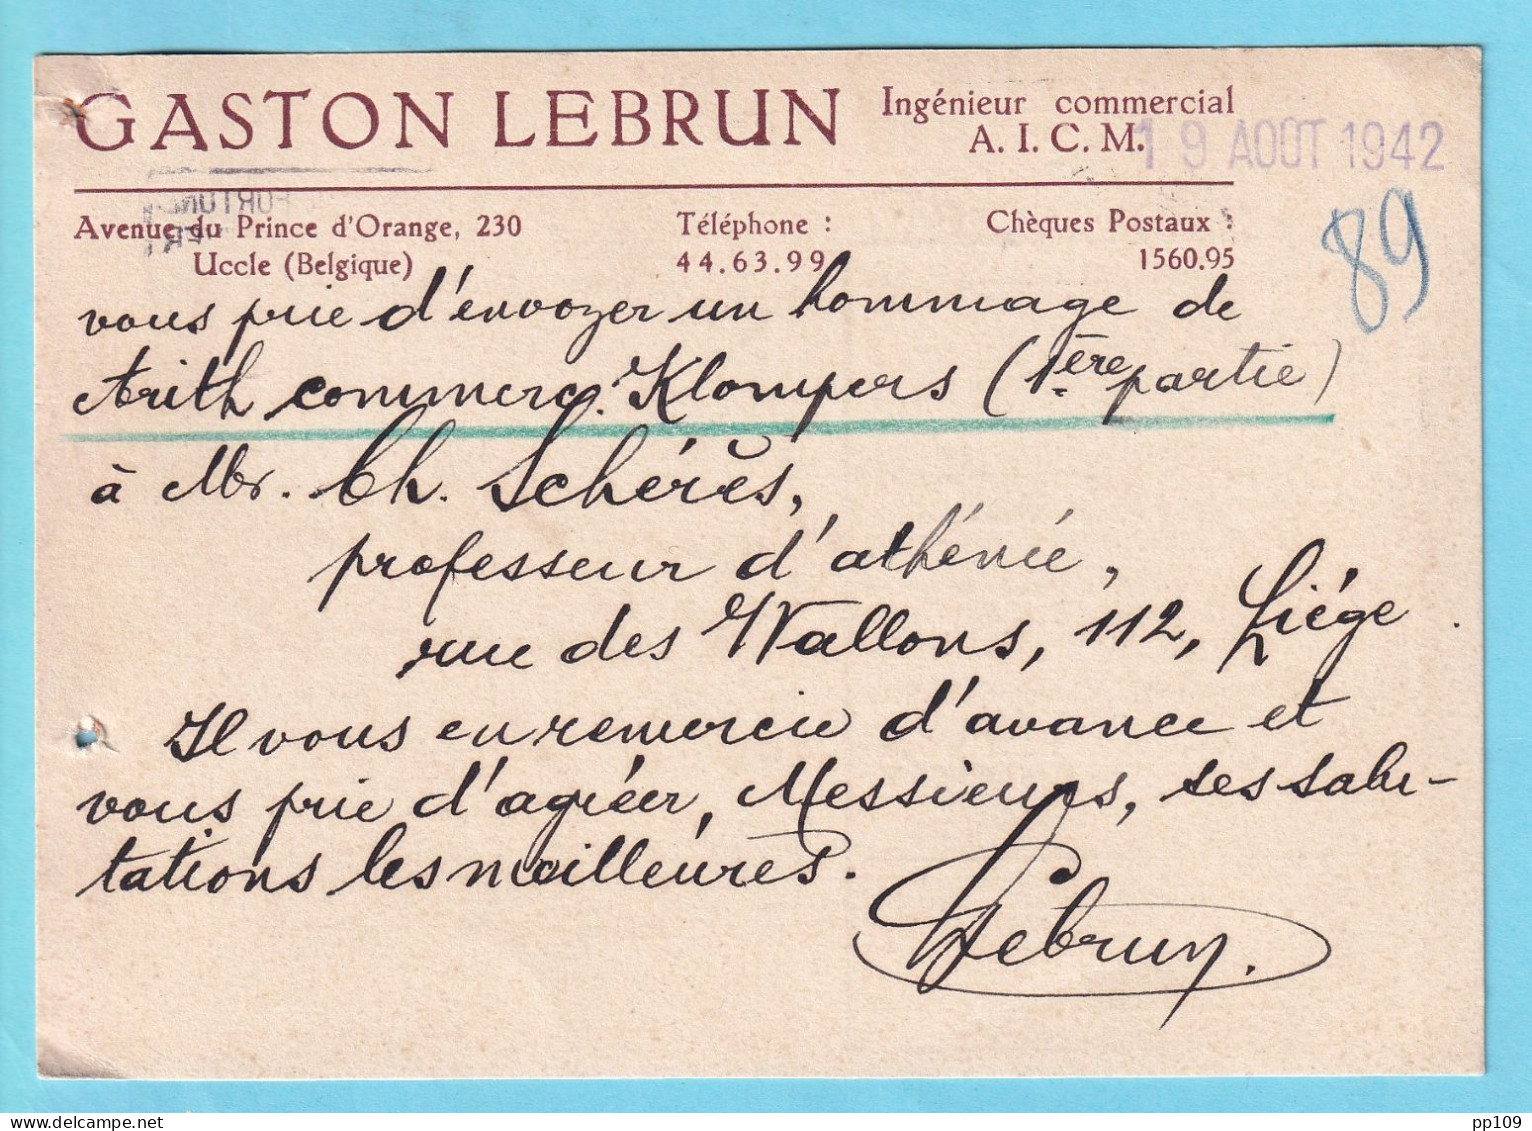 GASTON LEBRUN
Ingénieur commercial
A. I. C. M.
19 AOUT 1942
Avenue du Prince d'Orange, 230
Uccle (Belgique)
Téléphone :
44.63.99
Chèques Postaux :
1560.95
89
vous prie d'envoyer un hommage de
Arith commerc. Klompers (1ère partie)
à Mr. Ch. Schérès,
professeur d'athénée,
rue des Wallons, 112, Liége.
Il vous en remercie d'avance et
vous prie d'agréer, Messieurs, ses salu-
tations les meilleures.
Lebrun.
pp109